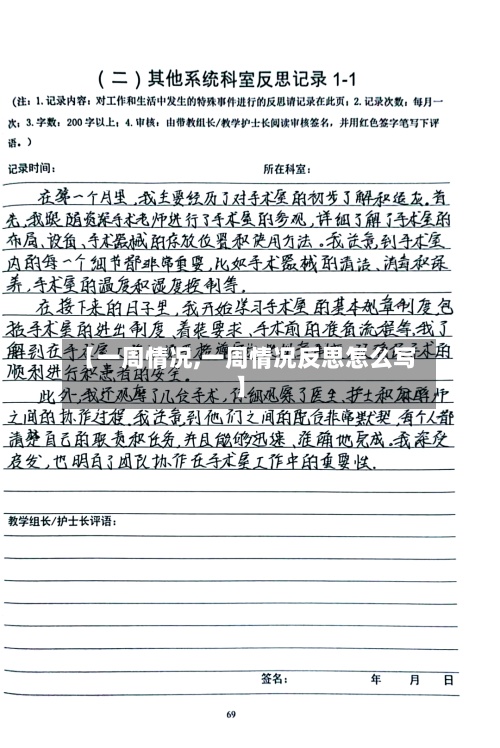 （二）其他系统科室反思记录 1-1
（注：1.记录内容：对工作和生活中发生的特殊事件进行的反思请记录在此页；2.记录次数：每月一
次；3.字数：200 字以上；4.审核：由带教组长/教学护士长阅读审核签名，并用红色签字笔写下评
语。）
记录时间： 所在科室：
在第一个月里，我主要经历了对手术室的初步了解和适应。首
先，我跟随资深手术老师进行了手术室的参观，详细了解了手术室的
布局、设备、手术器械的存放位置和使用方法。我注意到手术室
内的每一个细节都非常重要，比如手术器械的清洁、消毒和保
养，手术室的温度和湿度控制等。
在接下来的日子里，我开始学习手术室的基本规章制度，包
括手术室的进出制度、着装要求、手术前的准备流程等。我了
解到在手术室 术的
【一周情况,一周情况反思怎么写
】
顺利进行和患者的安全。
此外，我还观摩了几台手术，仔细观察了医生、护士和麻醉师
之间的协作过程，我注意到他们之间的配合非常默契，每个人都
清楚自己的职责和任务，并且能够迅速、准确地完成。我深受
启发，也明白了团队协作在手术室工作中的重要性。
教学组长/护士长评语：
签名： 年 月 日
69